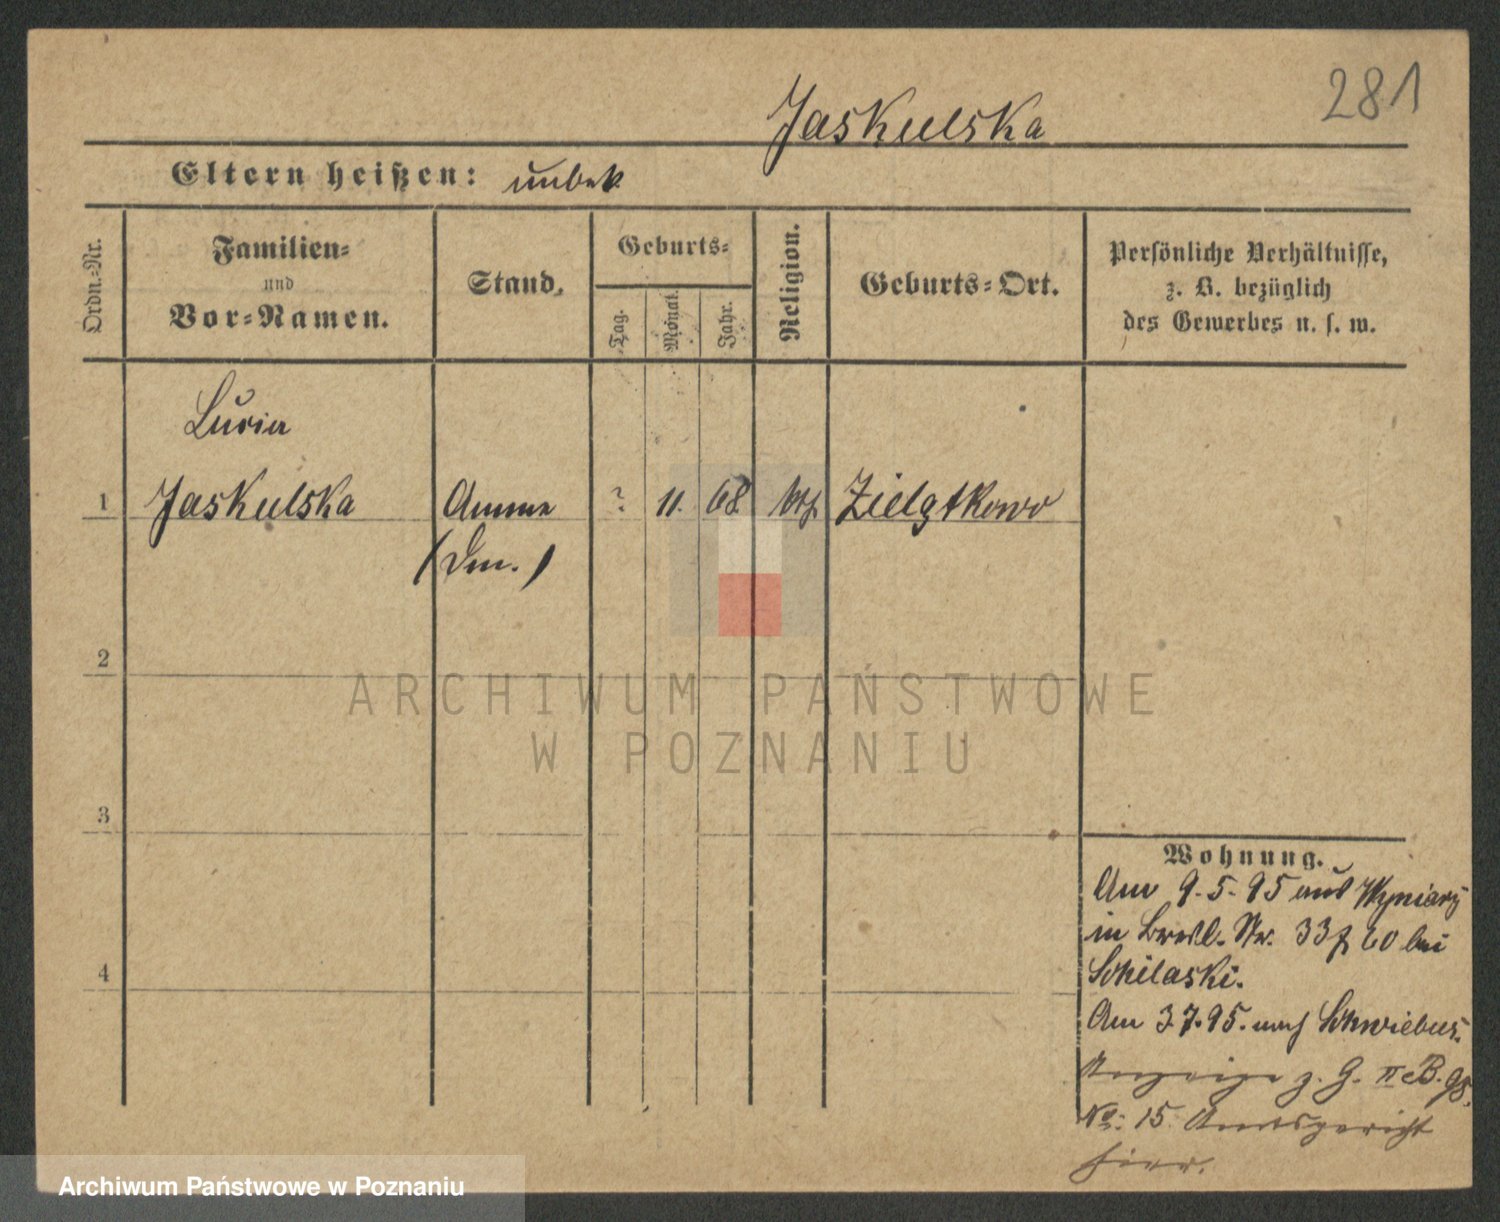 281
Jaskulska
Eltern heißen: unbek
Ordn.-Nr.
Familien-
und
Vor-Namen.
Stand.
Geburts-
Tag.
Monat.
Jahr.
Religion.
Geburts-Ort.
Persönliche Verhältnisse,
z. B. bezüglich
des Gewerbes u. s. w.
1
Jaskulska
Amme
? 11. 68 kth
Zielątkowo
2
3
4
ARCHIWUM PAŃSTWOWE
W POZNANIU
Wohnung.
Am 9.5.95 aus Wyniary
in Bresl. Str. 33 bei
Am 3.7.95. nach Schwiebus.
Anzeige z. G. II B. 98.
No: 15. Amtsgericht
hier.
Archiwum Państwowe w Poznaniu